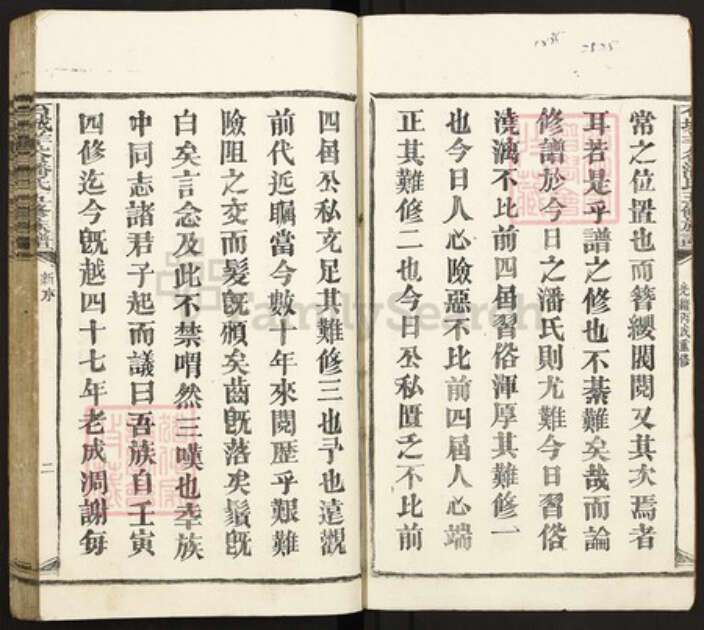 常之位置也而簪纓閥閱又其次焉者
耳若是乎譜之修也不綦難矣哉而論
修譜於今日之潘氏則尤難今日習俗
澆漓不比前四屆習俗渾厚其難修一
也今日人心險惡不比前四屆人心端
正其難修二也今日公私匱乏不比前
光緒丙戌重修
四屆公私充足其難修三也予也遠觀
前代近矚當今數十年來閱歷乎艱難
險阻之交而髮旣頒矣齒旣落矣鬚旣
白矣言念及此不禁喟然三嘆也幸族
中同志諸君子起而議曰吾族自壬寅
四修迄今旣越四十七年老成凋謝每
潘氏五修族譜
新序
二
FamilySearch